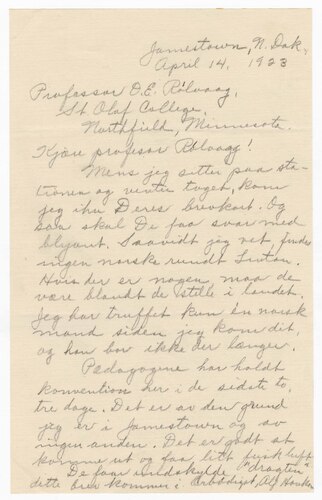 Jamestown, N. Dak.
April 14, 1923
Professor O. E. Rölvaag,
St. Olaf College,
Northfield, Minnesota.
Kjære profesor Rölvaag!
Mens jeg sitter paa sta-
tionen og venter toget, kom
jeg ihu Deres brevkort. Og
saa skal De faa svar med
blyant. Saavidt jeg vet, findes
ingen norske rundt
Hvis der er nogen, maa de
være blandt de stille i landet.
Jeg har truffet kun én norsk
mand siden jeg kom dit,
og han bor ikke der længer.
Pedagogene har holdt
konvention her i de sidste to,
tre dage. Det er av den grund
jeg er i Jamestown og av
ingen anden. Det er godt at
komme ut og faa litt frisk luft.
De faar undskylde "dragten"
dette brev kommer i. Arbødigst,